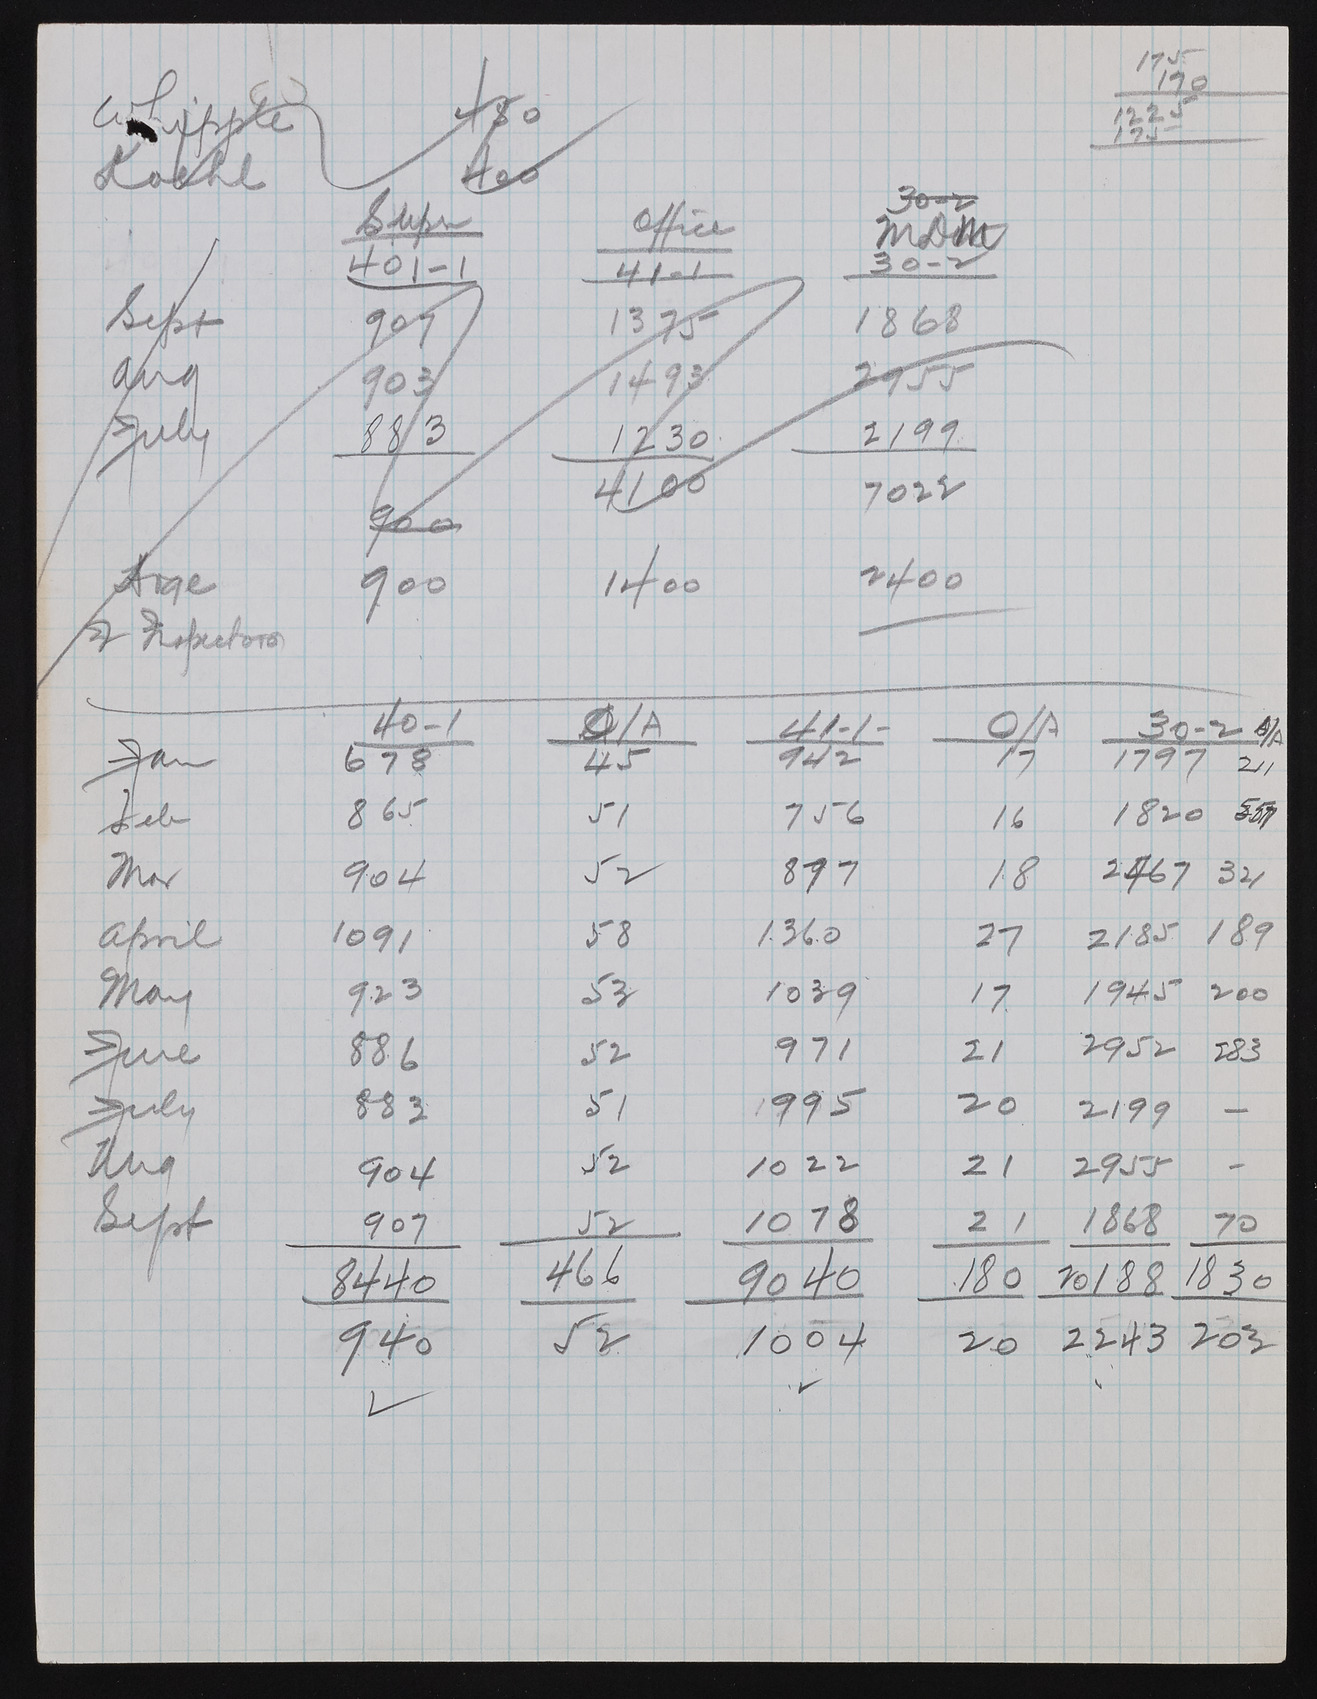 175
170
1225
175
Whipple 480
Koehl 400
30-2
Supr Office MDM
401-1 41-1 30-2
Sept 907 1375 1868
Aug 903 1493 2955
July 883 1230 2199
4100 7022
900
Avge 900 1400 2400
7 Inspectors
40-1 O/A 41-1- O/A 30-2 O/A
Jan 678 45 942 17 1797 211
Feb 865 51 756 16 1820 557
Mar 904 52 897 18 2467 321
April 1091 58 1360 27 2185 189
May 923 53 1039 17 1945 200
June 886 52 971 21 2952 283
July 883 51 995 20 2199 -
Aug 904 52 1022 21 2955 -
Sept 907 52 1078 21 1868 70
8440 466 9040 180 20188 1830
940 52 1004 20 2243 203